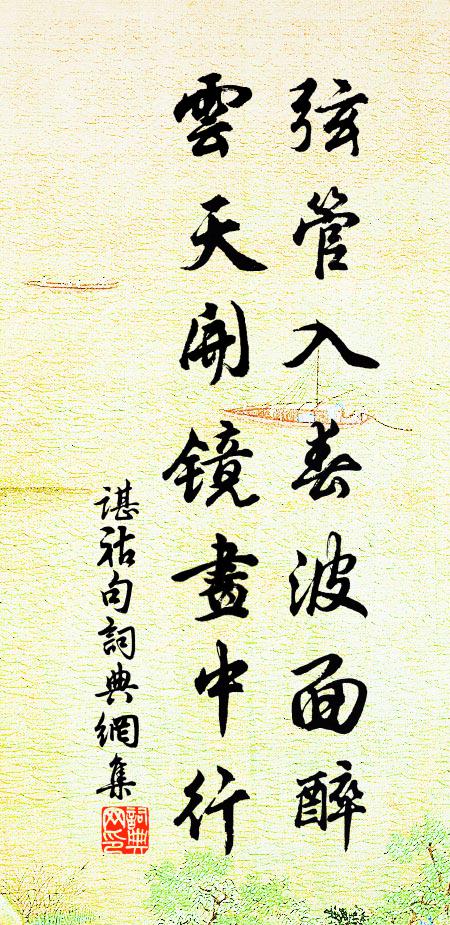 弦管入春波面醉
雲天開鏡畫中行
諶祜句詞典網集
詞典網印